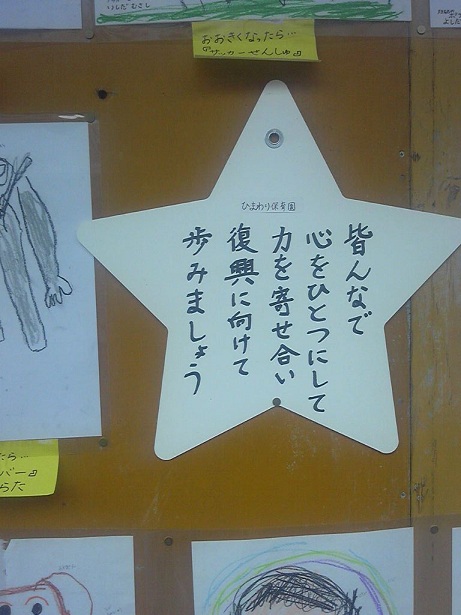 おおきくなったら…
『サッカーせんしゅ』
ひまわり保育園
皆んなで
心をひとつにして
力を寄せ合い
復興に向けて
歩みましょう